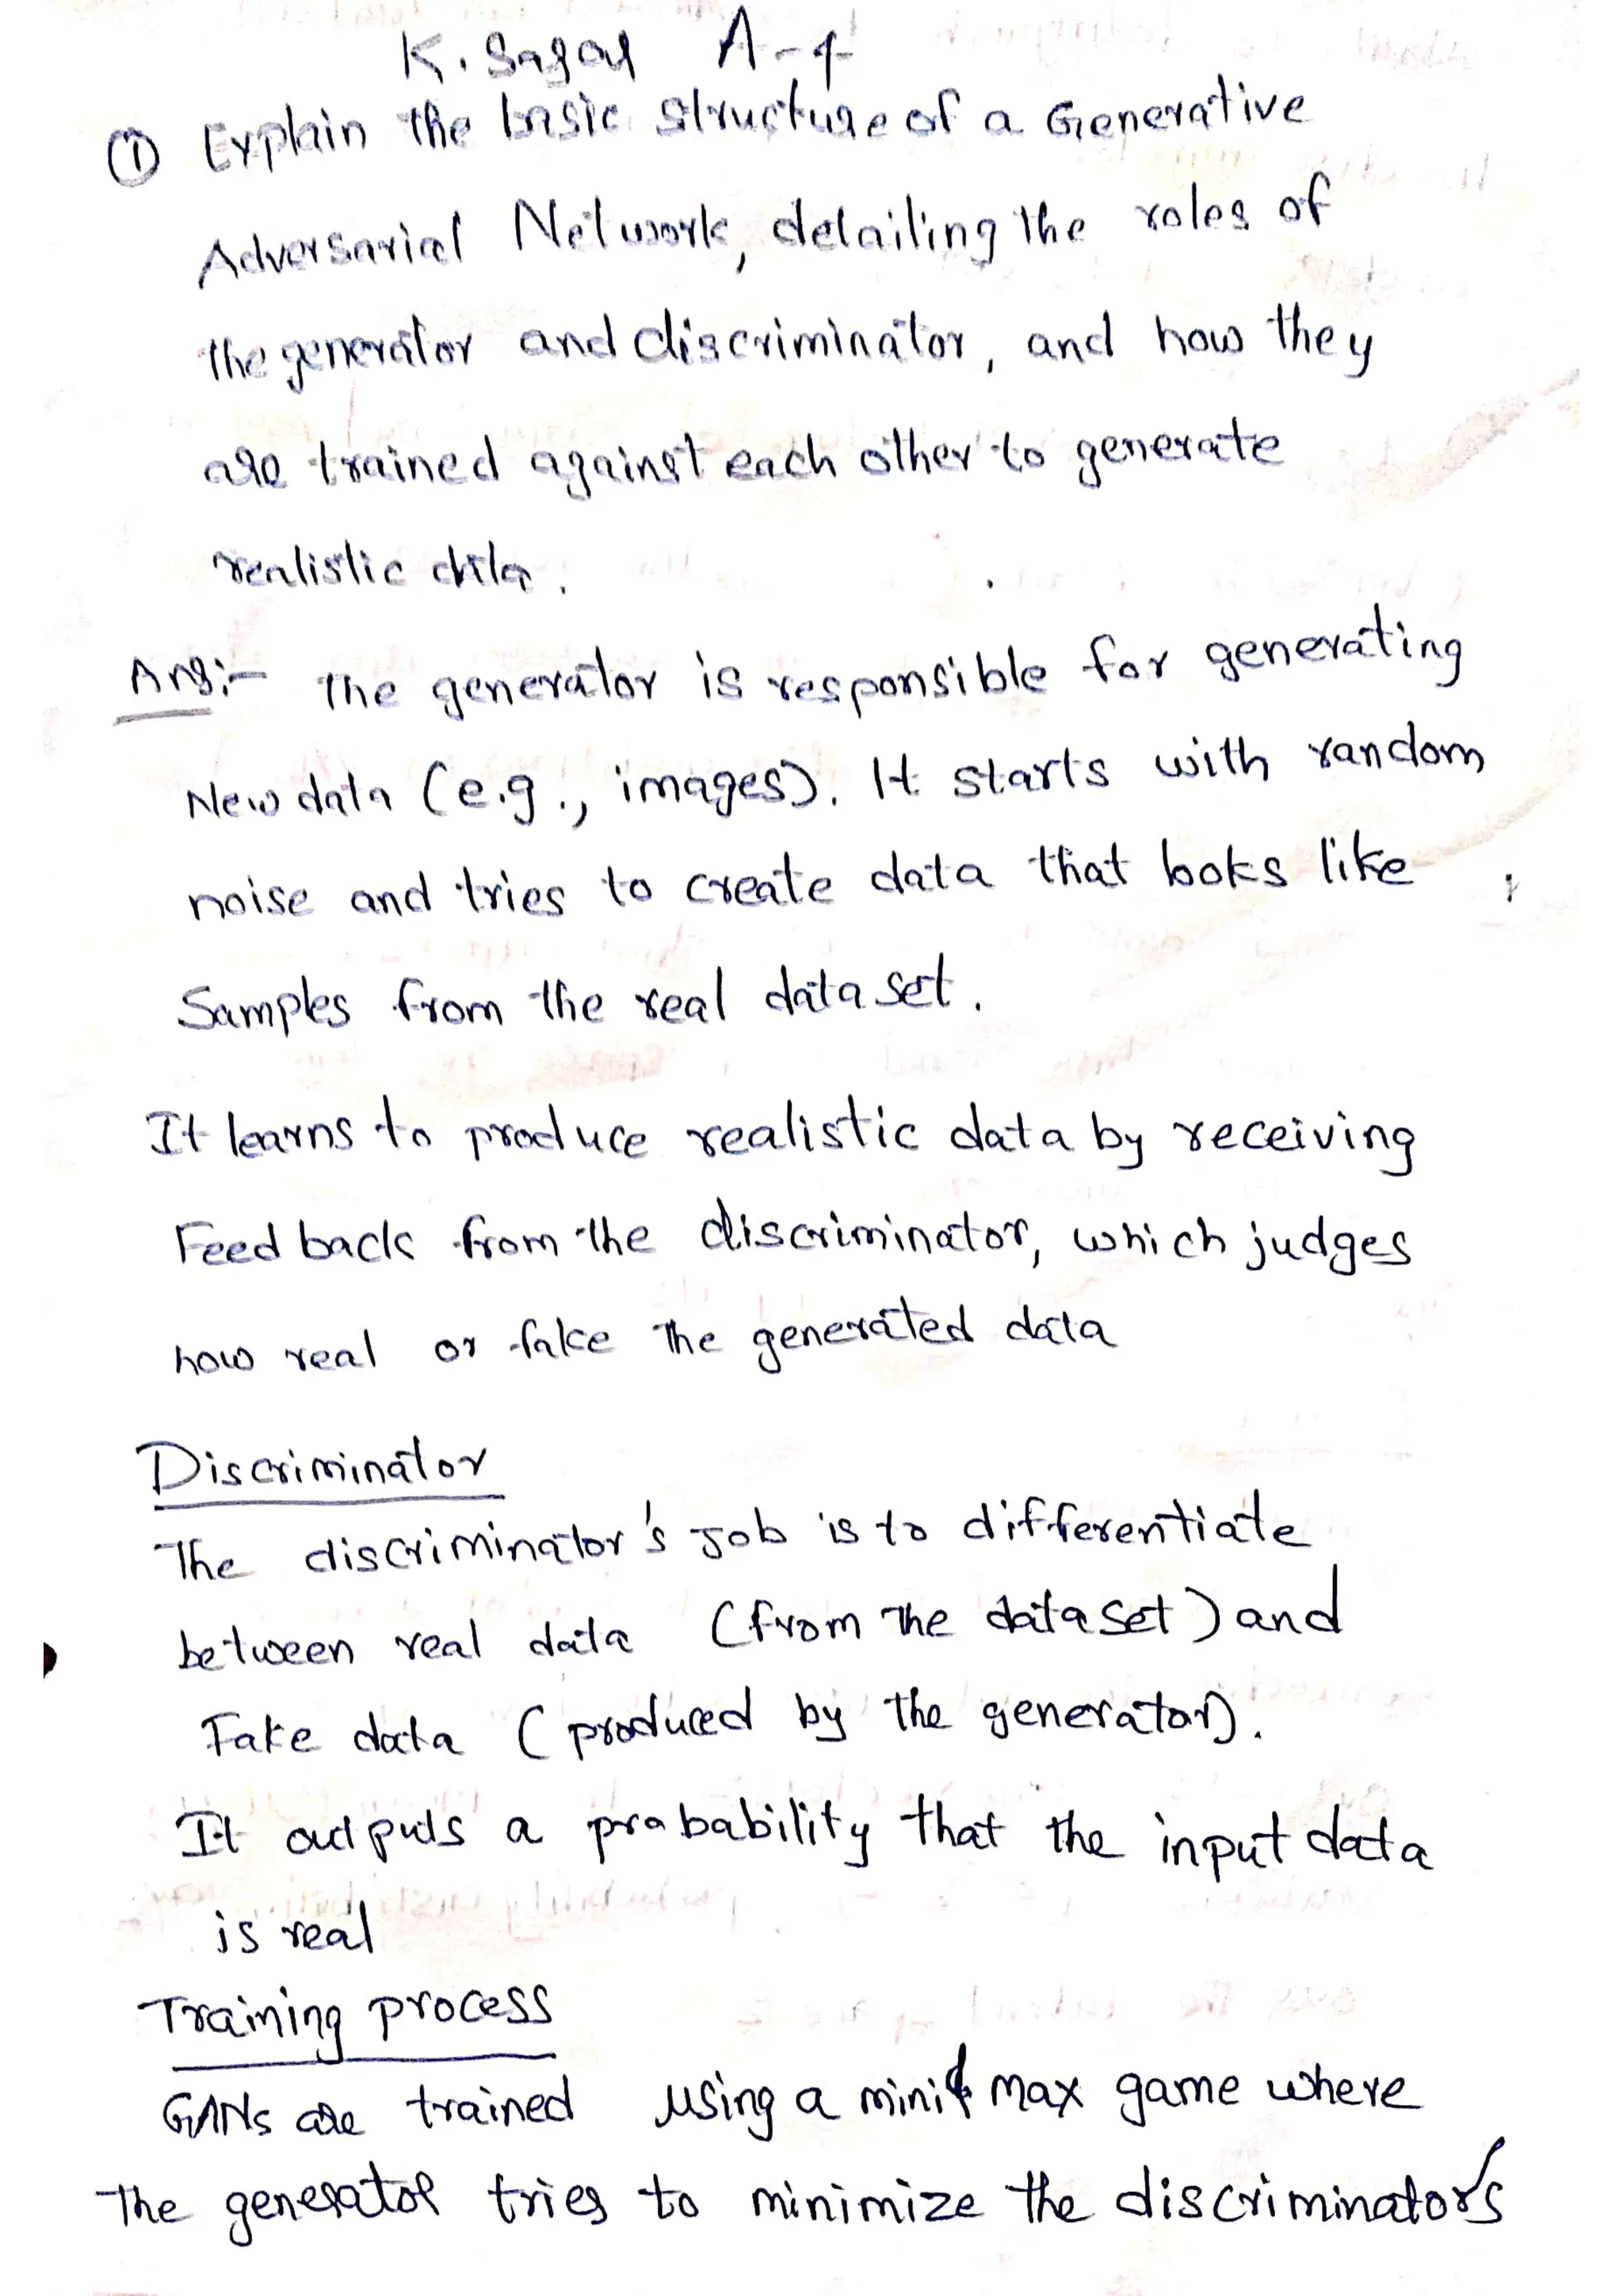 K. Sagar A-4
① Explain the basic structure of a Generative
Adversarial Network, detailing the roles of
the generator and discriminator, and how they
are trained against each other to generate
realistic data.
Ans:- The generator is responsible for generating
New data (e.g., images). It starts with random
noise and tries to create data that looks like
Samples from the real data set.
It learns to produce realistic data by receiving
Feed back from the discriminator, which judges
how real or fake the generated data
Discriminator
The discriminator's Job is to differentiate
between real data (from The data set) and
Fake data (produced by the generator).
It outputs a prabability that the input data
is real
Training process
GANs are trained using a mini max game where
The generator tries to minimize the discriminator's